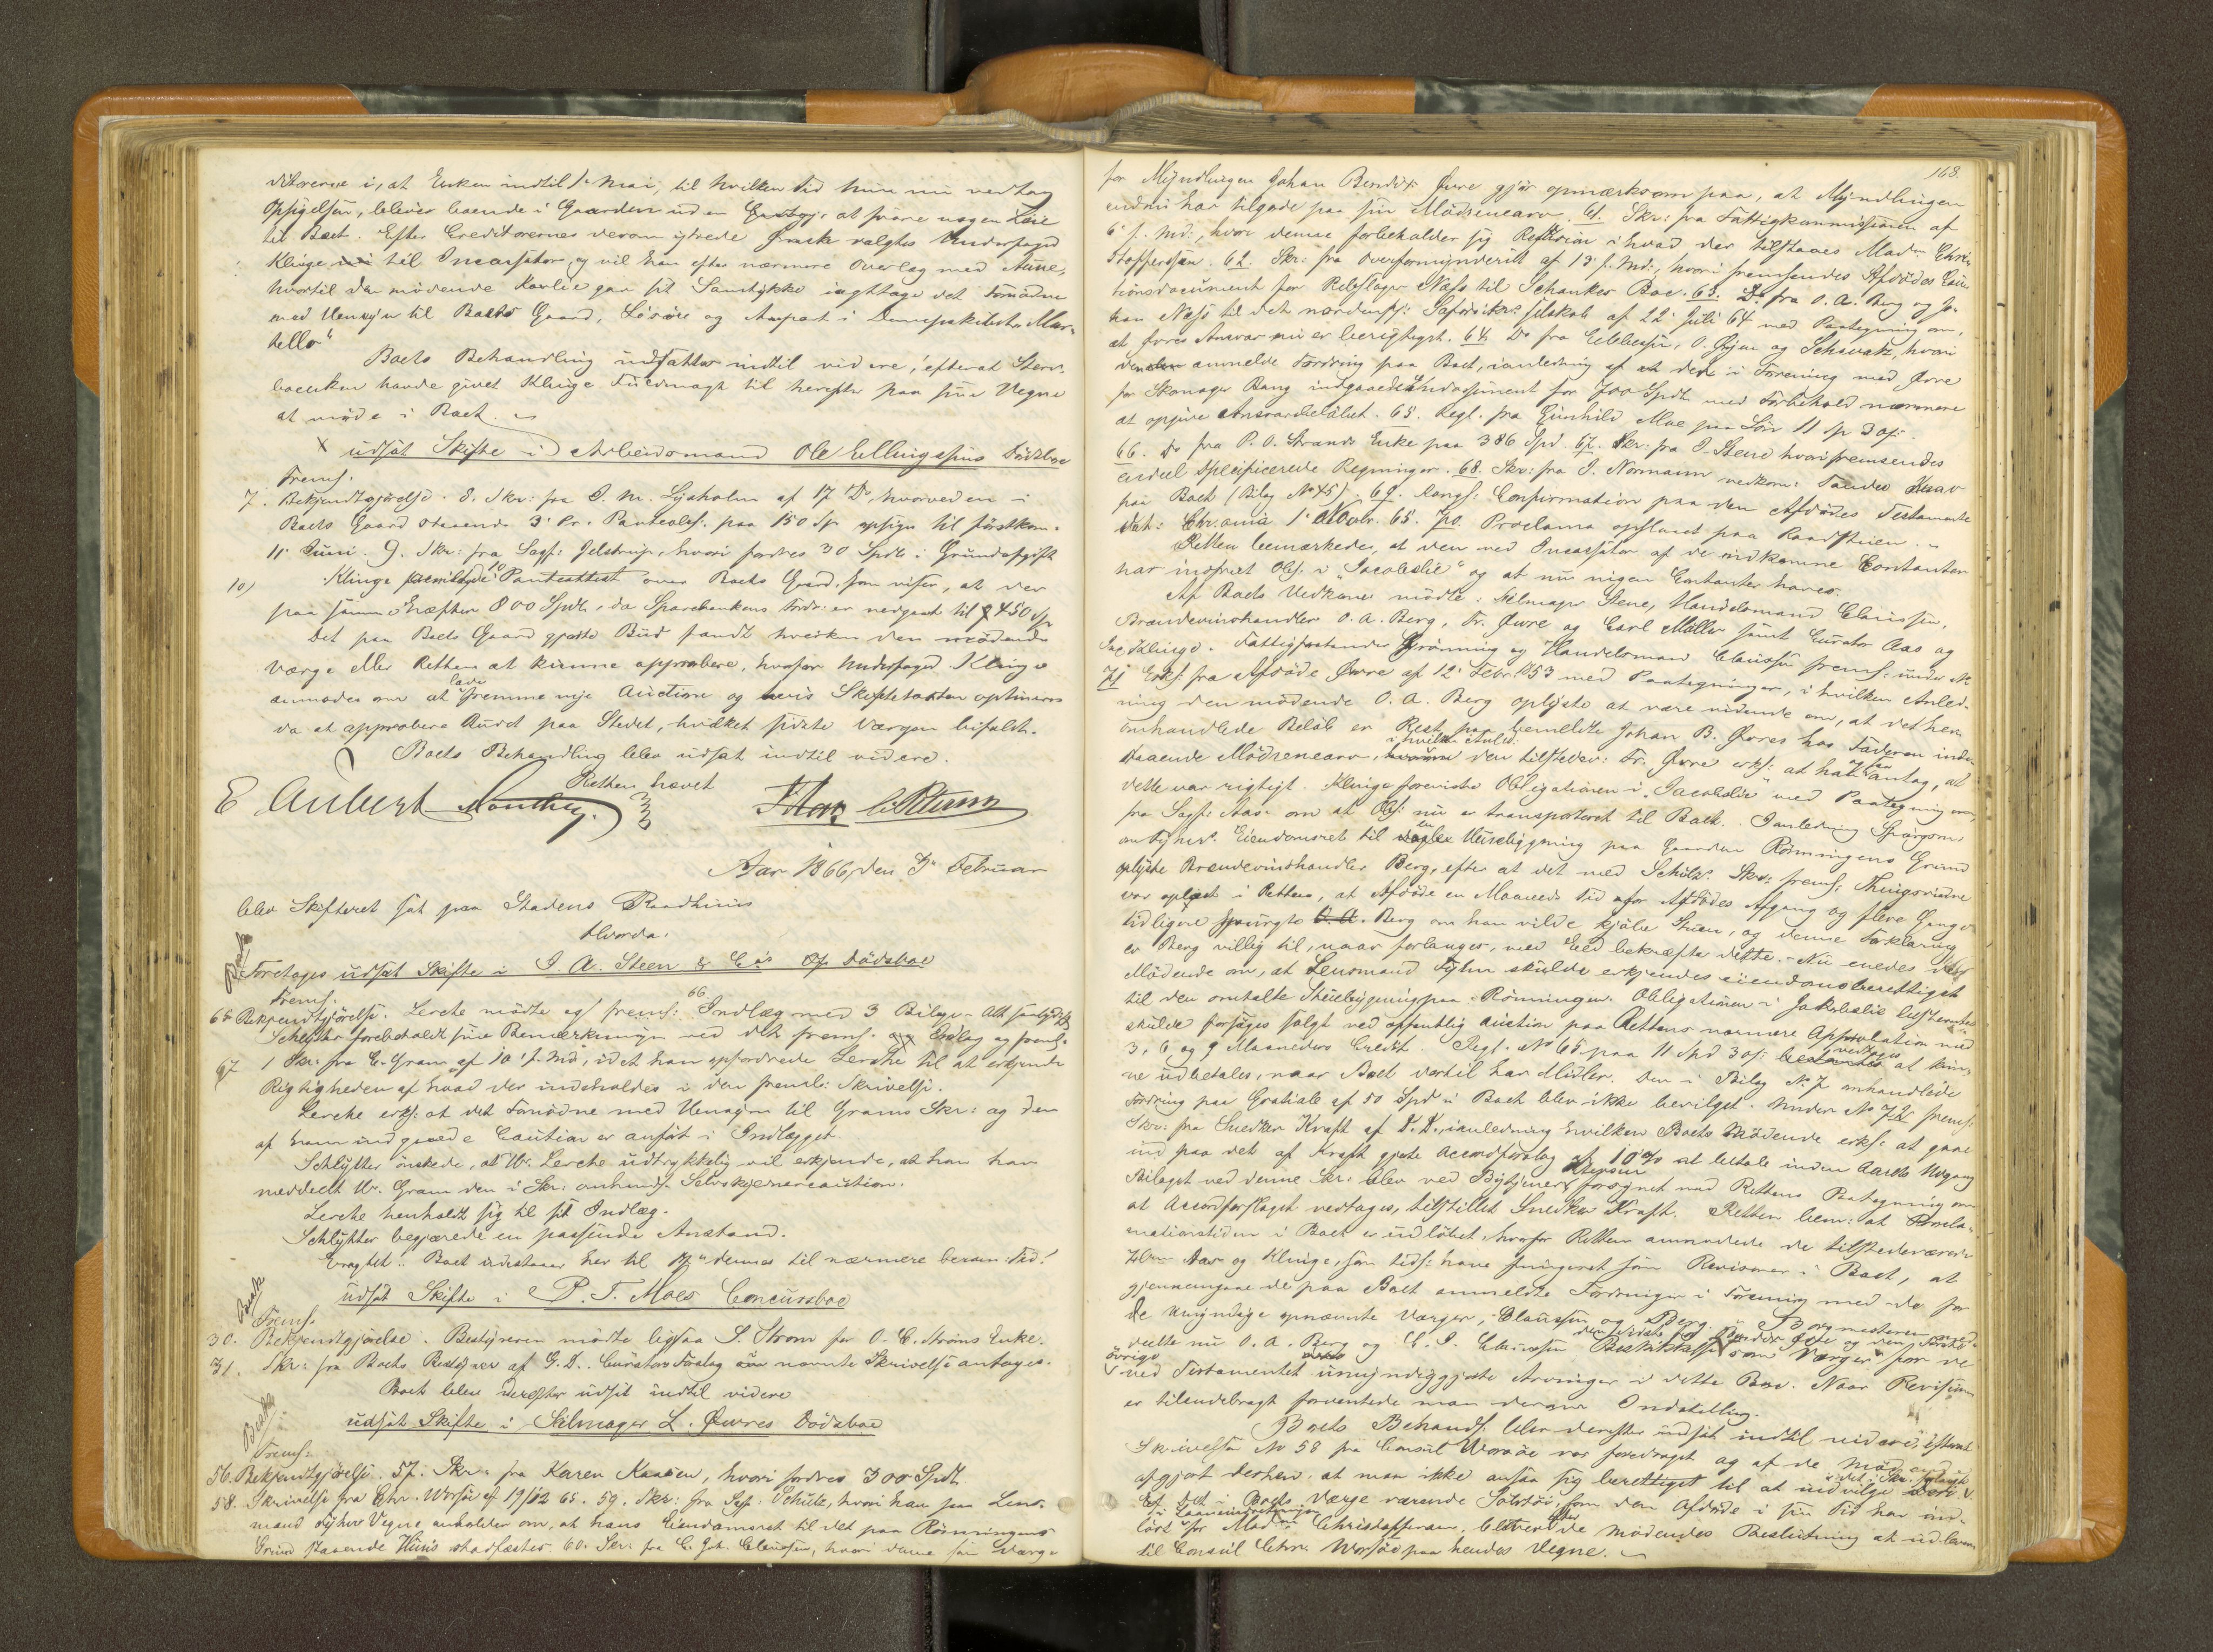 ditorerne i, at Enken indtil 1ste Mai, til hvilken Tid hun nu vedtog
Opsigelsen, bliver boende i Gaarden uden at svare nogen Leie
til Boet. Efter Creditorernes derom ytrede Ønske valgtes Underfoged
Klinge til Incassator, og vil han efter nærmere Overlæg med Aune,
hvortil den mødende Karlie gav sit Samtykke iagttage det Fornødne
med Hensyn til Boets Gaard, Løsøre og Anpart i Dampskibet "Mar-
tello"
Boets Behandling udsattes indtil videre, efterat Sterv-
boenken havde givet Klinge Fuldmagt til herefter paa sine Vegne
at møde i Boet.
X udsat Skifte i Arbeidsmand Ole Ellingsens Dødsboe
Frems.
7. Bekjendtgjørelse. 8. Skr: fra I. M. Lysholm af 17 Ds, hvorved en i
Boets Gaard staaende 3' Pr. Panteobl. paa 150 Sp opsiges til førstkom.
11' Juni. 9. Skr: fra Sagf: Jelstrup, hvori fordres 30 Spd. i Grundafgift
10) Klinge fremlagde 10 Panteattest over Boets Gaard, som viser, at der
paa samme hæfter 800 Spd., da Sparebankens Fordr: er nedgaaet til 450 Sp
Det paa Boets Gaard gjorte Bud fandt hverken den mødende
Værge eller Retten at kunne approbere, hvorfor Underfoged Klinge
anmodes om at lade fremme nye Auction og hvis Skiftetaxten opnaaes
da at approbere Budet paa Stedet, hvilket sidste Værgen bifaldt.
Boets Behandling blev udsat indtil videre.
Retten hævet
E Aubert
Aar 1866, den 3' Februar
blev Skifteret sat paa Stadens Raadhuus
Hvorda:
Foretoges udsat Skifte i I. A. Steen & Co's Op Dødsboe
Frems.
65 Bekjendtgjørelse. Lerche mødte og frems: 66 Indlæg med 3 Bilage.
Schlytter forebeholdt sine Bemærkninger ved det frems. Indlæg og frems.
67 1 Skr: fra C. Gram af 10' s. Md, idet han opfordrede Lerche til at erkjende
Rigtigheden af hvad der indeholdes i den fremls: Skrivelse.
Lerche erkl: at det Fornødne med Hensyn til Grams Skr: og den
af ham indgaaede Caution er anført i Indlægget.
Schlytter ønskede, at Hr. Lerche udtrykkelig vil erkjende, at han har
meddelt Hr. Gram den i Skr: omhandl. Selvskyldnercaution.
Lerche henholdt sig til sit Indlæg.
Schlytter begjærede en passende Anstand.
Eragtet: Boet udstaaer her til dennes til nærmere beram: Tid!
udsat Skifte i P. T. Moes Concursboe
Frems.
30. Bekjendtgjørelse. Bestyreren mødte ligesaa S. Strøm for O. C. Strøms Enke.
31. Skr: fra Boets Bestyrer af G. D. Curators Forslag nævnte Skrivelse antoges.
Boet blev derefter udsat indtil videre
udsat Skifte i Seilmager L. Øwres Dødsboe
Frems:
56. Bekjendtgjørelse. 57. Skr: fra Karen Kaasen, hvori fordres 300 Spd.
58. Skrivelse fra Chr. Worsøe af 19/12 65. 59. Skr: fra Sagf. Schulz, hvori han paa Lens-
mand Tyhns Vegne anholder om, at hans Eiendomsret til det paa Rønningens
Grund staaende Huus stadfæstes. 60. Skr: fra C. Joh. Claussen, hvori denne som Værge
168.
for Myndlingen Johan Bendix Øwre gjør opmærksom paa, at Myndlingen
endnu har tilgode paa sin Mødrenearv. 61. Skr: fra Fattigkommissionen af
6' s. Md., hvori denne forbeholder sig Refusion i hvad der tilstaaes Madm Chri-
stoffersen. 62. Skr: fra Overformynderiet af 13' s. Md., hvori fremsendes Afdødes Cau-
tionsdocument for Rebslager Næss til Schankes Boe. 63. Do fra O. A. Berg og Jo-
han Næss til det nordenfj: Søforsikr. Selskab af 22' Juli 64 med Paategning om,
at fores Ansvar nu er berigtiget. 64 Do fra Ebbesen, O. Øyen og Schwartz, hvori
anmelde Fordring paa Boet, i anledning af et den i Forening med Øvre
for Skomager Bang indgaaede Endossement for 700 Spd. med Forbehold nærmere
at opgive Ansvarsbeløbet. 65. Regl. fra Gunhild Moe paa Løn 11 Sp 3 ort.
66. Do fra P. O. Strands Enke paa 386 Spd. 67. Skr: fra I. Steno hvori fremsendes
endeel specificerede Regninger. 68. Skr: fra I. Normann vedkom: Fandes Krav
paa Boet (Bilag No 45). 69. Kongl: Confirmation paa den Afdødes Testamente
dat: Chr.ania 1' Novbr. 65. 70. Proclama opslaaet paa Raadstuen.
Retten bemærkede, at den ved Incassator af de indkomne Contanter
har indfriet Obl. i "Jacobslie" og at nu ingen Contanter haves.
Af Boets Vedkomne mødte: Seilmager Stene, Handelsmand Claussen,
Brændevinshandler O. A. Berg, Fr. Øwre og Carl Møller samt Curator Aas og
Inc. Klinge. Fattigforstander Grønning og Handelsmand Claussen frems: under No
71 Erkl. fra Afdøde Øwre af 12' Febr. 1853 med Paategninger, i hvilken Anled-
ning den mødende O. A. Berg oplyste at være vidende om, at det her
omhandlede Beløb er Rest paa bemeldte Johan B. Øvres hos Faderen inde-
staaende Mødrenearv, i hvilken Anled. den tilstedev: Fr. Øwre erkl: at han antog, at
dette var rigtigt. Klinge foreviste Obligationen i "Jacobslie" med Paategning
fra Sagf: Aas om at Obl: nu er transporteret til Boet. I anledning Spørgsm:
om Tyhns: Eiendomsret til en Huusbygning paa Gaarden Rønningens Grund
oplyste Brændevinshandler Berg, efter at det med Schultz' Skr: frems: Thingsvidne
var oplæst i Retten, at Afdøde en Maaneds Tid før Afdødes Afgang og flere Gange
tidligere spurgte Berg om han vilde kjøbe Stuen, og denne Forklaring
er Berg villig til, naar forlanges, med Eed bekræfte dette. Nu enedes de
Mødende om, at Lensmand Tyhn skulde erkjendes eiendomsberettiget
til den omtalte Stuebygning paa Rønningen. Obligationen i Jakobslie bestemtes
skulde forsøges solgt ved offentlig Auction paa Rettens nærmere Approbation med
3, 6 og 9 Maaneders Credit. Regl. No 65 paa 11 Spd 3 ort: vedtages at kun-
ne udbetales, naar Boet dertil har Midler. Den i Bilag No 7 omhandlede
Fordring paa Gratiale af 50 Spd i Boet blev ikke bevilget. Under No 72 frems:
Skr: fra Snedker Kraft af D. D., i anledning hvilken Boets Mødende erkl: at gaae
ind paa det af Kraft gjorte Accordforslag af 10% at betale inden Aarets Udgang
Bilaget ved denne Skr: blev ved Bytjener Jepsen forsynet med Rettens Paategning om
at Accordforslaget vedtages, tilstillet Snedker Kraft. Retten bem: at Procla-
mationstiden i Boet er udløbet, hvorfor Retten anmodede de tilstedeværende
Hrr Aas og Klinge, som tidl: have fungeret som Revisorer i Boet, at
gjennemgaae de paa Boet anmeldte Fordringer i Forening med de for
de Umyndige opnævnte Værger, Claussen og Berg. Borgmesteren med-
deelte nu O. A. Berg og C. I. Claussen Beskikkelse som Værger for de
øvrige ved Testamentet umyndiggjorte Arvinger i dette Boe. Naar Revisionen
er tilendebragt forventede man derom Indstilling.
Boets Behandl. blev derefter udsat indtil videre, efterat
Skrivelsen No 58 fra Consul Worsøe var foredraget og af de Mød
afgjort derhen, at man ikke ansaa sig berettiget til at indvilge
Et det i Boets Værge værende Sølvtøi, som den Afdøde i sin Tid har ind-
løst for Madm Christoffersen, blev efter de Mødendes Beslutning at udlevere
til Consul Chr. Worsøe paa hendes Vegne.